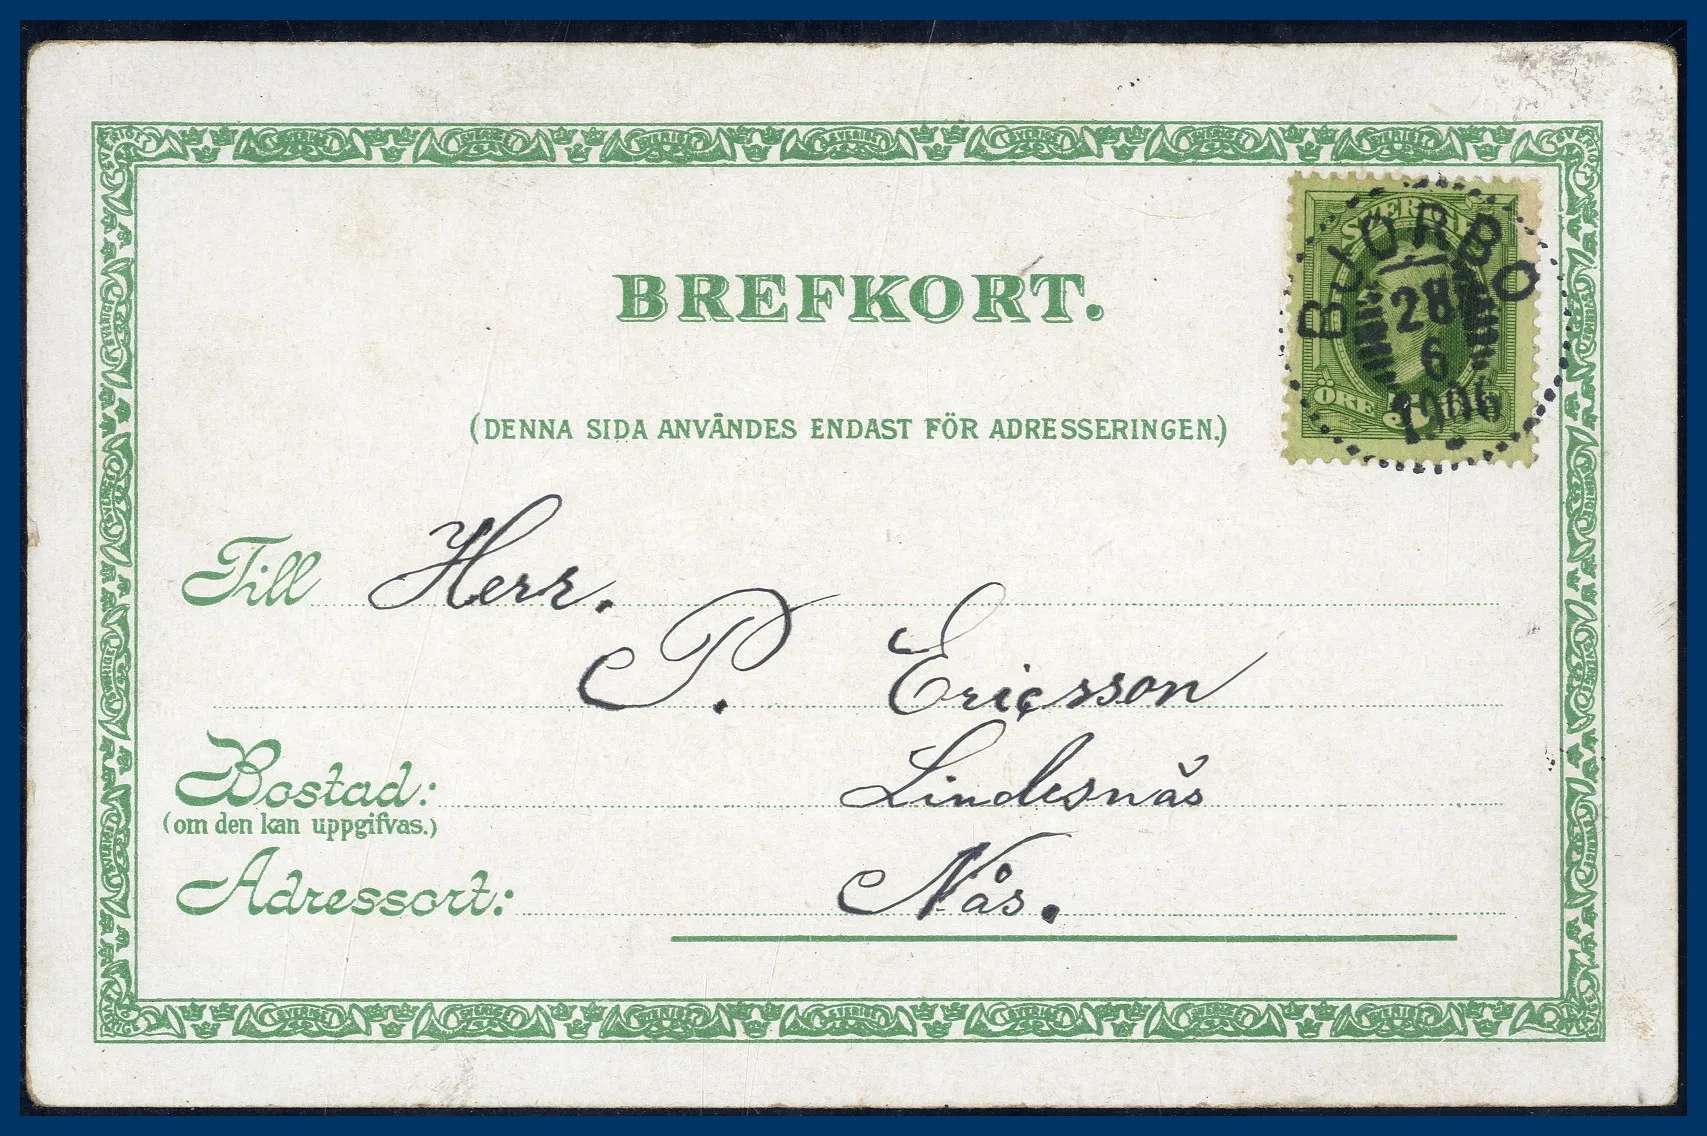 BREFKORT.
SVERIGE
BJORBO
28
6
1906
ÖRE 5 ÖRE
(DENNA SIDA ANVÄNDES ENDAST FÖR ADRESSERINGEN.)
Till Herr.
P. Ericsson
Bostad: Lindesnäs
(om den kan uppgifvas.)
Adressort: Nås.